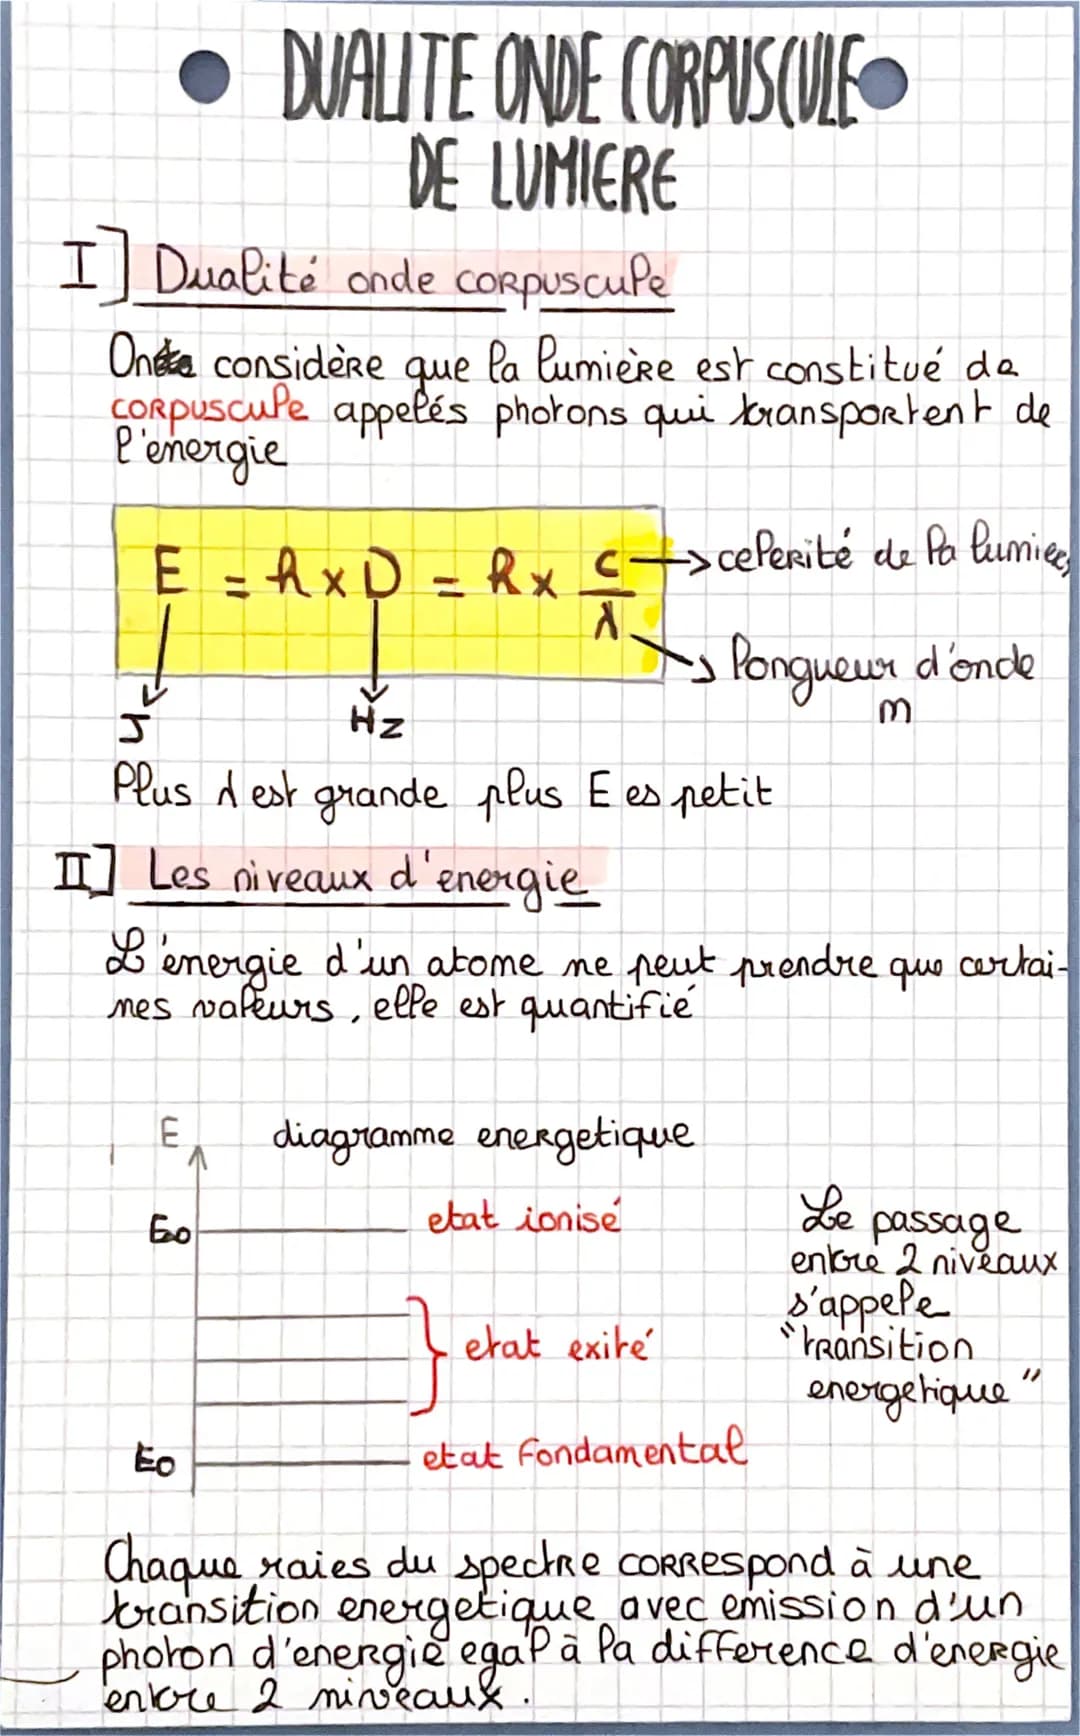 DUALITE ONDE CORPUSCULE
DE LUMIERE
I] Dualité onde corpuscule
On considère que la lumière est constitué de
corpuscule appelés photons qui transportent de
l'énergie
E = h x ν = h x c/λ → celerité de la lumiere
→ longueur d'onde
m
J
Hz
Plus λ est grande plus E es petit
II] Les niveaux d'énergie
L'énergie d'un atome ne peut prendre que certai-
nes valeurs, elle est quantifié
E
diagramme energetique
E∞
etat ionisé
etat exité
E0
etat fondamental
Le passage
entre 2 niveaux
s'appele
"transition
energetique"
Chaque raies du spectre correspond à une
transition energetique avec emission d'un
photon d'energie egal à la difference d'énergie
entre 2 niveaux.